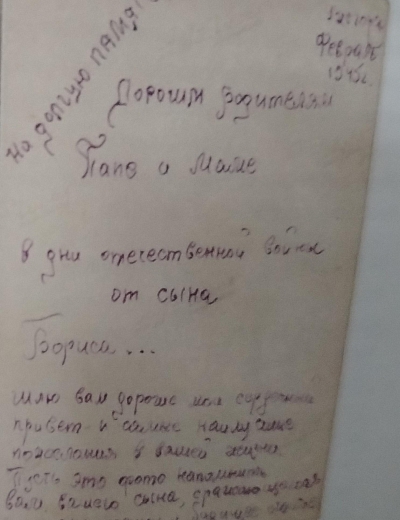 на долгую память
Февраль
1945г.
Дорогим Родителям
Папе и Маме
в дни отечественной войны
от сына
Бориса...
Шлю вам дорогие мои сердечный
привет и самые наилучшие
пожелания в вашей жизни.
Пусть это фото напомнит
вам вашего сына,